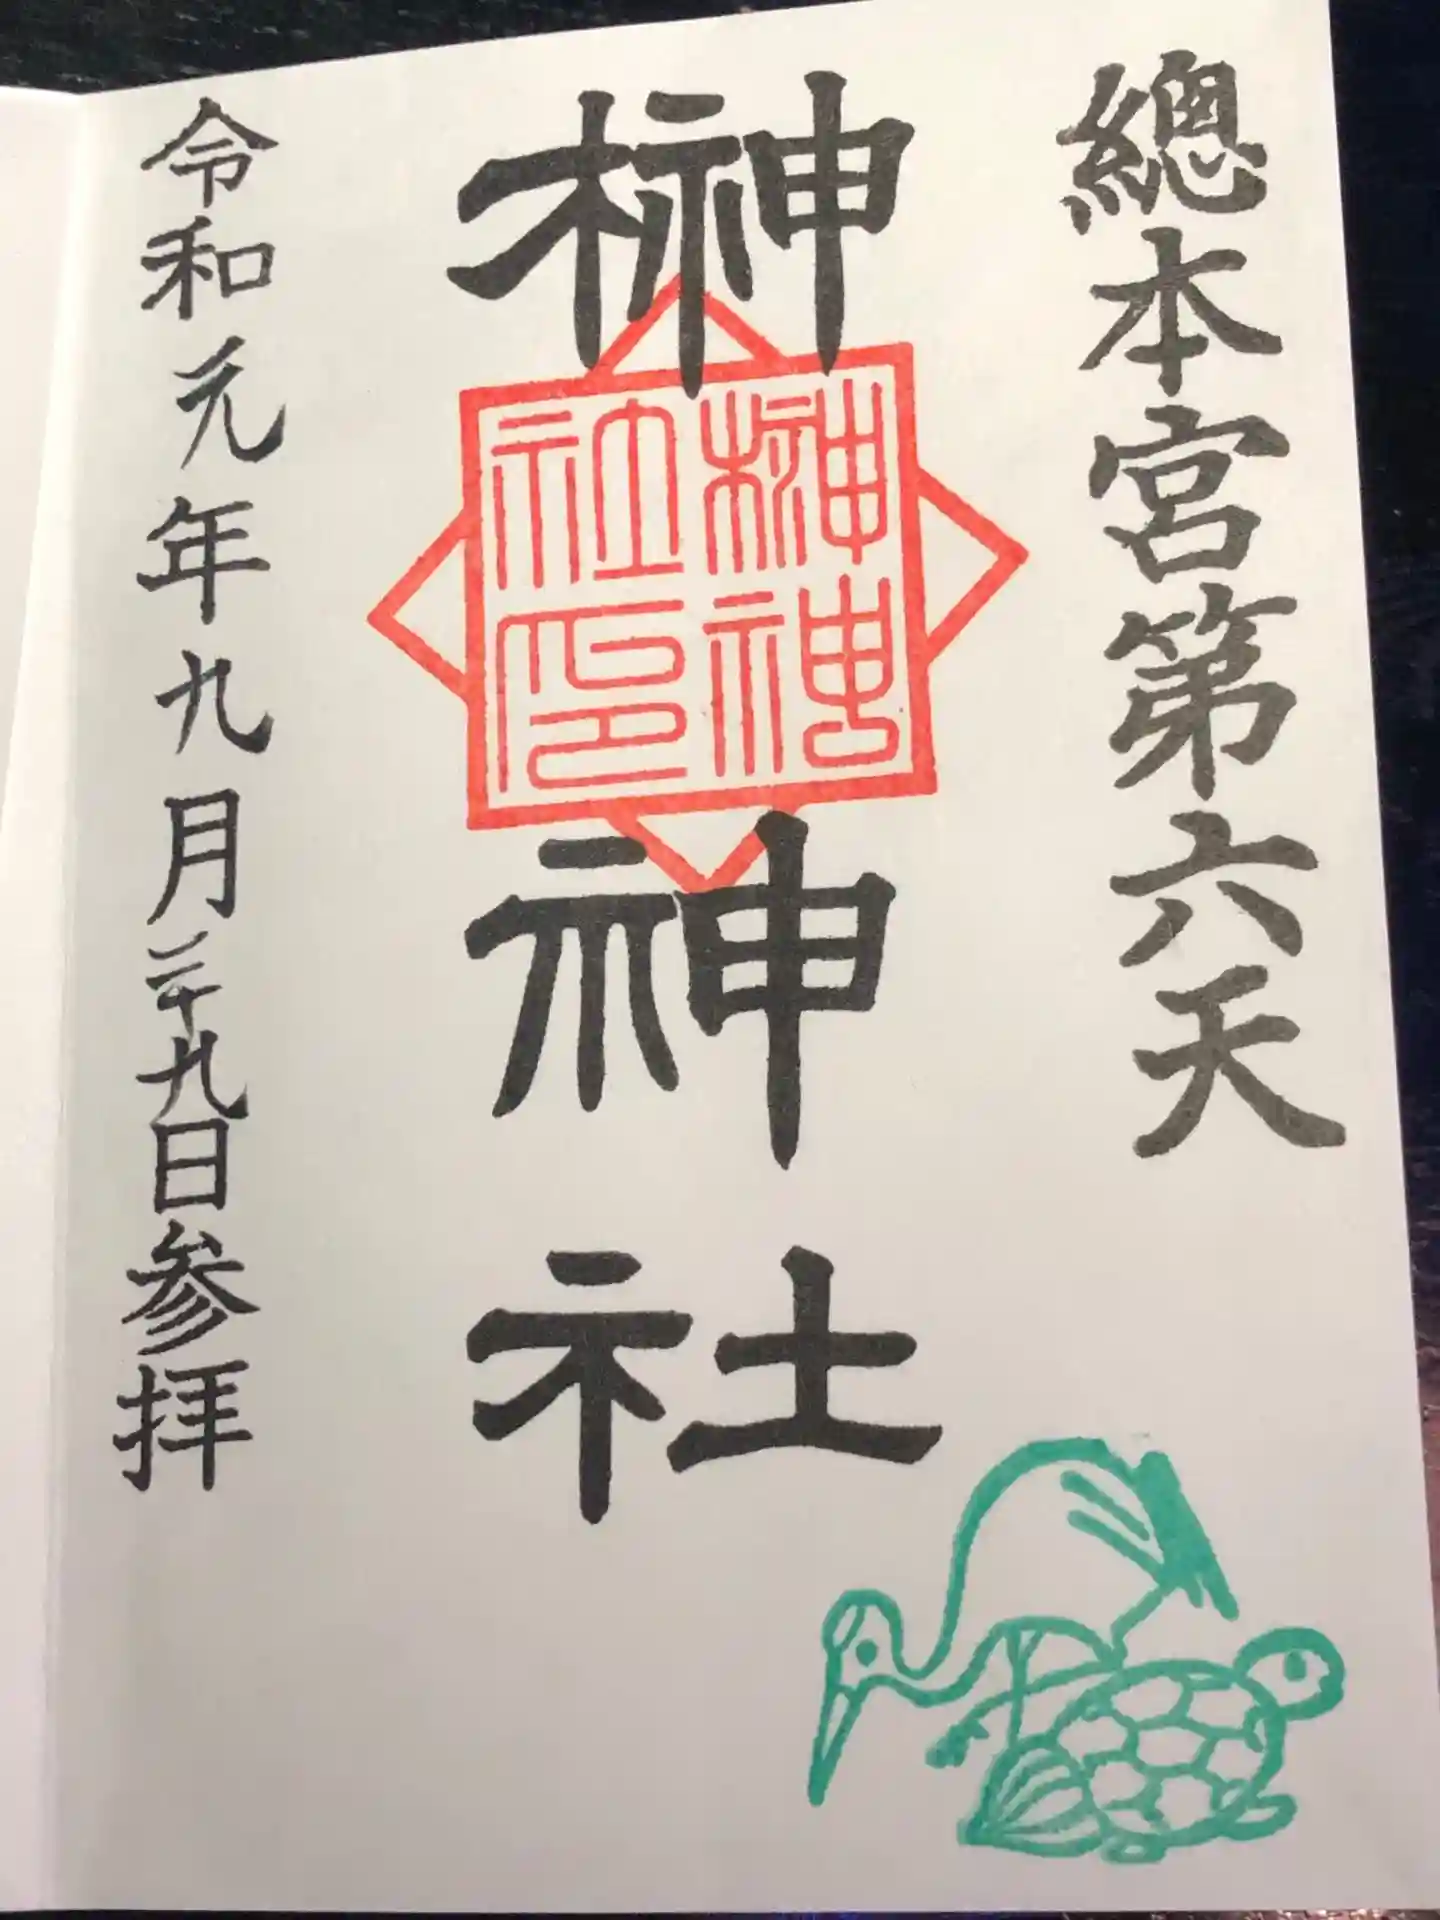 總本宮第六天
榊神社
榊神
社印
令和元年九月二十九日参拝